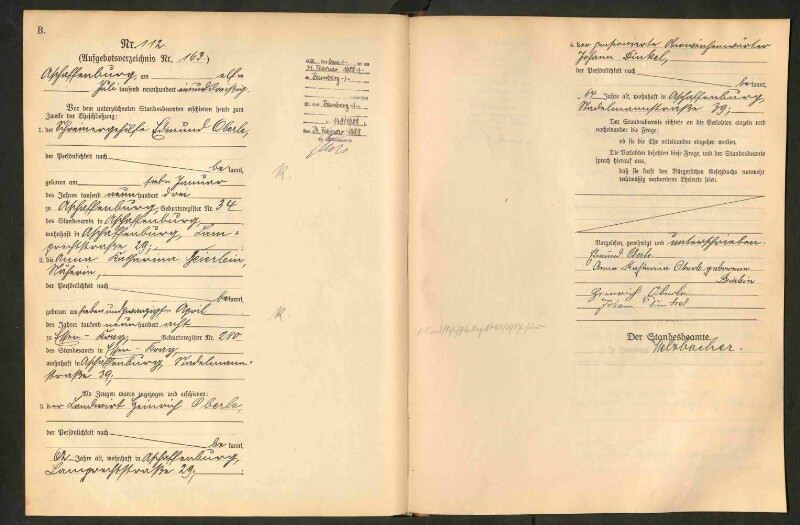 B.
Nr. 112
(Aufgebotsverzeichnis Nr. 163.)
Aschaffenburg, am elf=
Juli tausend neunhundert einunddreißig.
Vor dem unterzeichneten Standesbeamten erschienen heute zum
Zwecke der Eheschließung:
1. der Schreinergehilfe Edmund Oberle,
der Persönlichkeit nach
be kannt,
geboren am sieben Januar
des Jahres tausend neunhundert drei
zu Aschaffenburg, Geburtsregister Nr. 34
des Standesamts in Aschaffenburg,
wohnhaft in Aschaffenburg, Lam=
prechtstraße 29;
2. die Anna Katharina Beierlein,
Näherin,
der Persönlichkeit nach
be kannt,
geboren am siebenundzwanzigsten April
des Jahres tausend neunhundert acht
zu Essen - Kray, Geburtsregister Nr. 280
des Standesamts in Essen - Kray
wohnhaft in Aschaffenburg, Stadelmann=
straße 39;
Als Zeugen waren zugezogen und erschienen:
3. der Landwirt Heinrich Oberle,
der Persönlichkeit nach
be kannt,
62 Jahre alt, wohnhaft in Aschaffenburg,
Lamprechtstraße 29;
Februar 1988
Bamberg
Bamberg
Februar 1988
K.
K.
4. der pensionierte Oberweichenwärter
Johann Dinkel,
der Persönlichkeit nach
be kannt,
64 Jahre alt, wohnhaft in Aschaffenburg,
Stadelmannstraße 39;
Der Standesbeamte richtete an die Verlobten einzeln und
nacheinander die Frage:
ob sie die Ehe miteinander eingehen wollen.
Die Verlobten bejahten diese Frage, und der Standesbeamte
sprach hierauf aus,
daß sie kraft des Bürgerlichen Gesetzbuchs nunmehr
rechtmäßig verbundene Eheleute seien.
Vorgelesen, genehmigt und unterschrieben.
Edmund Oberle
Anna Katharina Oberle geborene
Beierlein
Heinrich Oberle
Johann Dinkel
Der Standesbeamte.
Melzbacher.